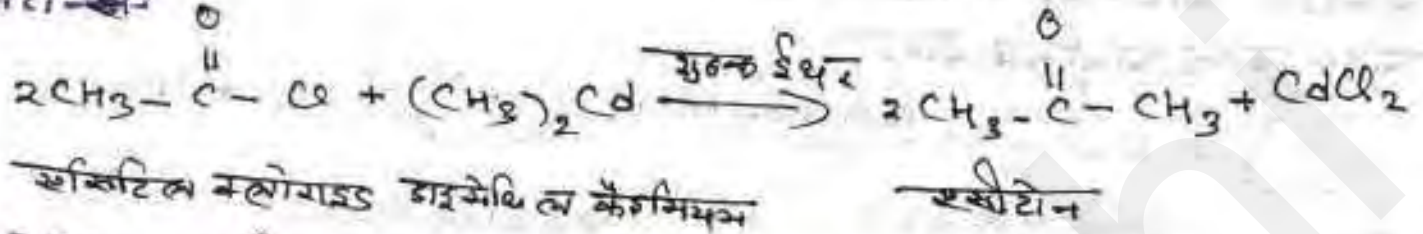 O O
|| ||
2CH3 - C - Cl + (CH3)2 Cd शुष्क ईथर ⟶ 2 CH3 - C - CH3 + CdCl2
एसिटिल क्लोराइड डाइमेथिल कैडमियम एसीटोन